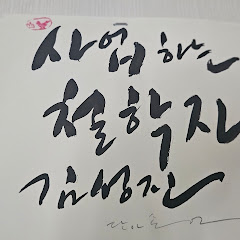 사업하는
철학자
김성진